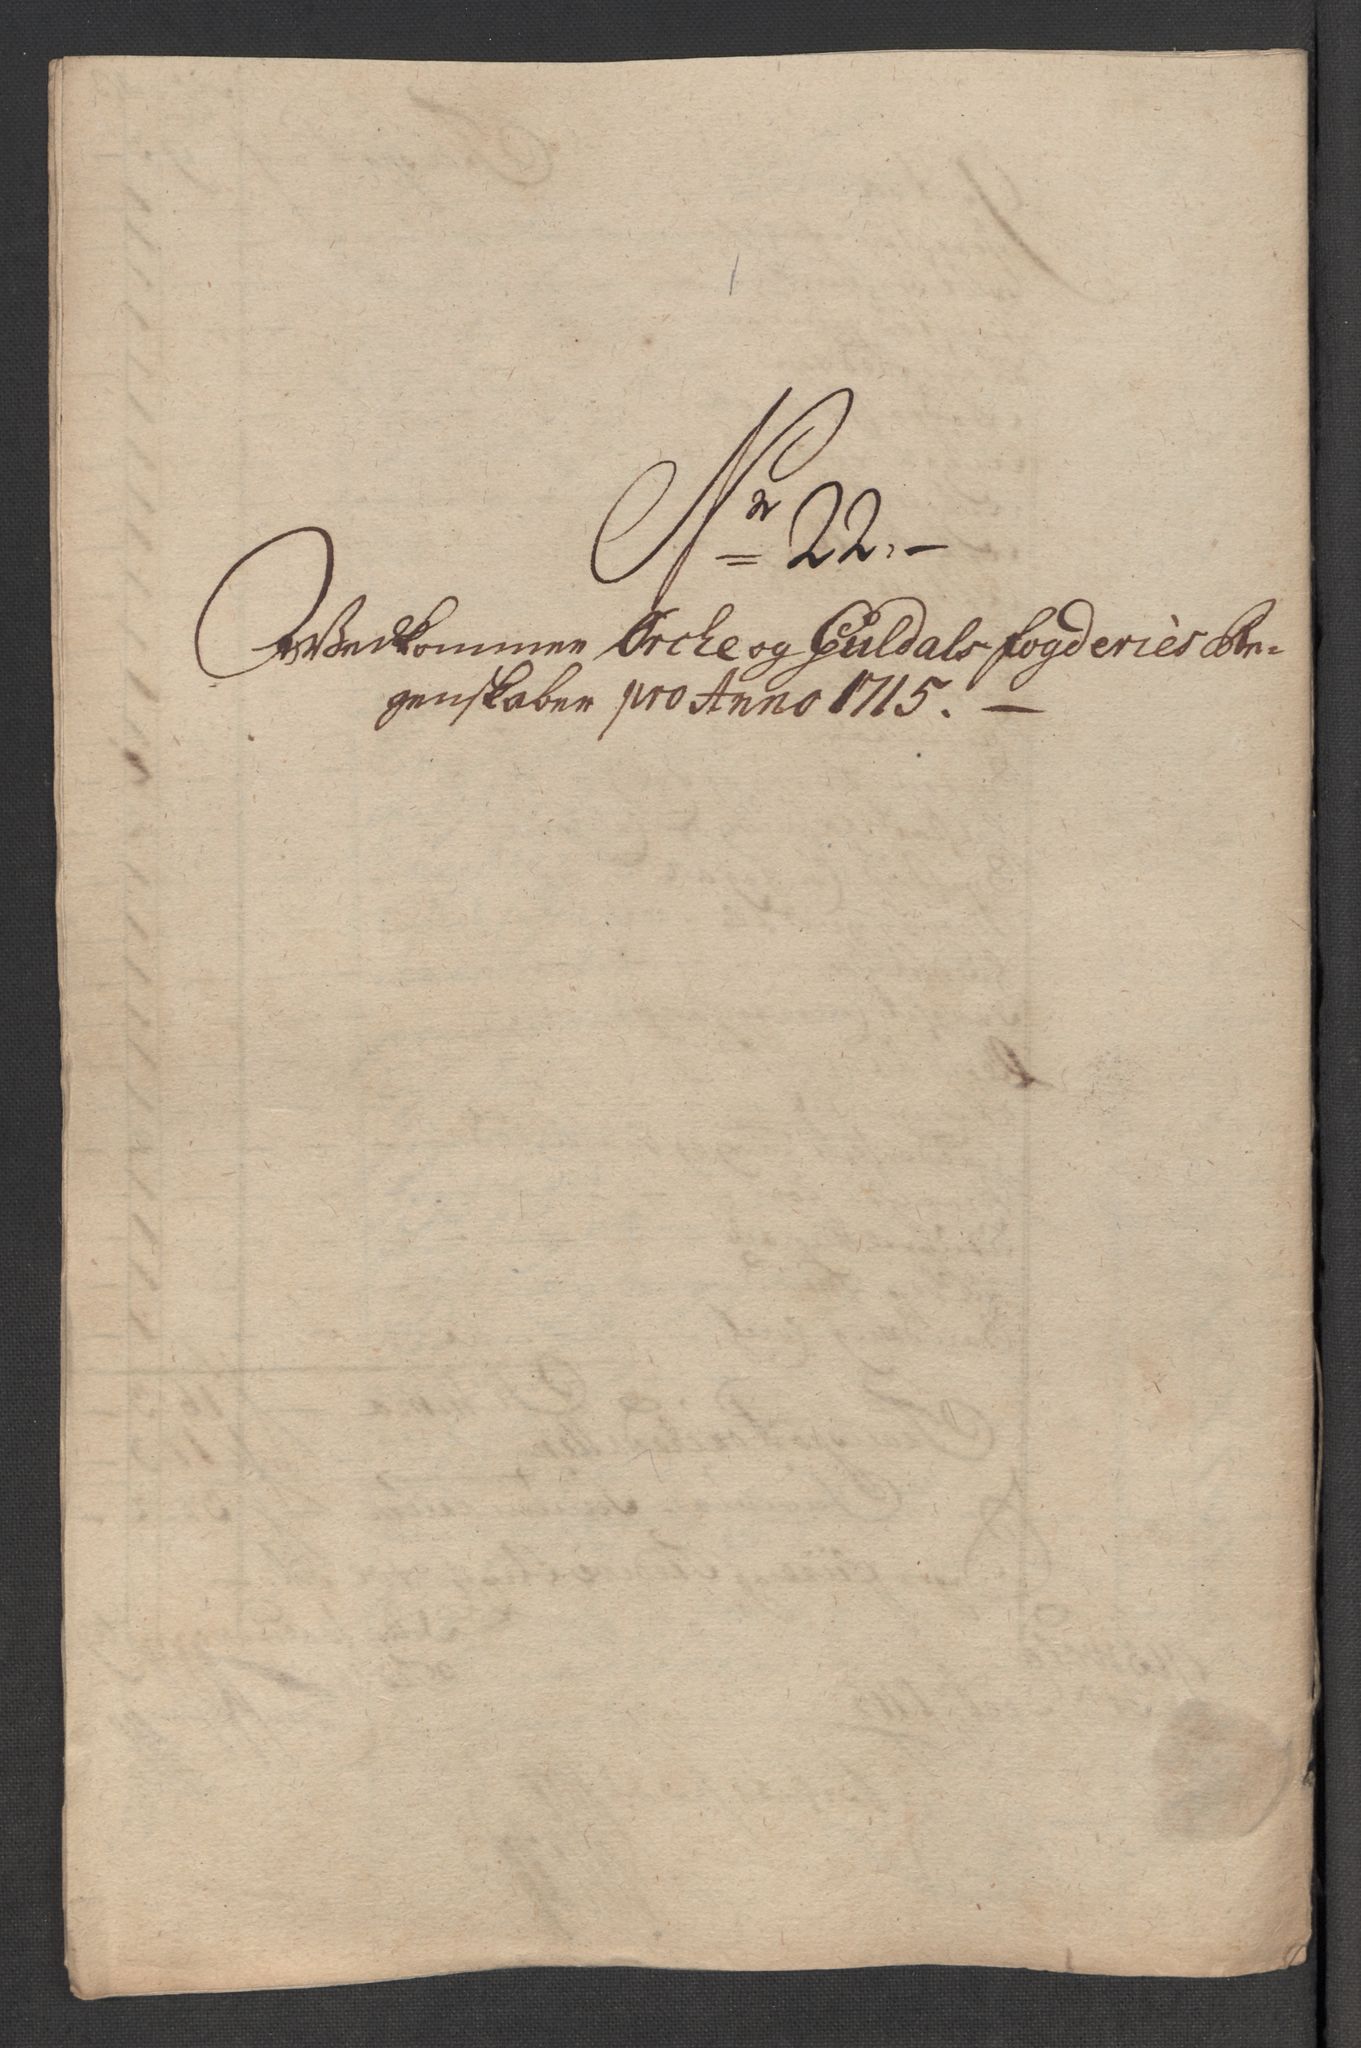 No 22.
Vedkommer Orche og Guldals fogderies Re-
genskaber pro Anno 1715.